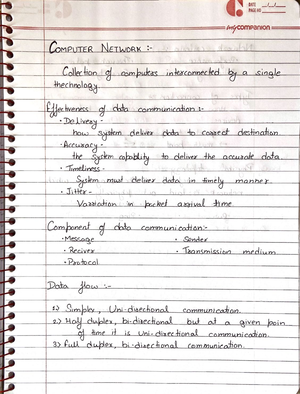 DATE
PAGE NO.
mycompanion
COMPUTER NETWORK :-
Collection of computers interconnected by a single
thechnology
Effectiveness of data communication :-
• Delivery -
how system deliver data to correct destination.
• Accuracy -
the system capablity to deliver the accurate data.
• Timeliness -
System must deliver data in timely manner.
• Jitter -
Variation in packet arrival time.
Component of data communication:-
• Message
• Sender
• Reciver
• Transmission medium
• Protocol
Data flow :-
1) Simplex, Uni-directional communication.
2) Half duplex, bi-directional but at a given poin
of time it is uni-directional communication.
3) Full duplex, bi-directional communication.